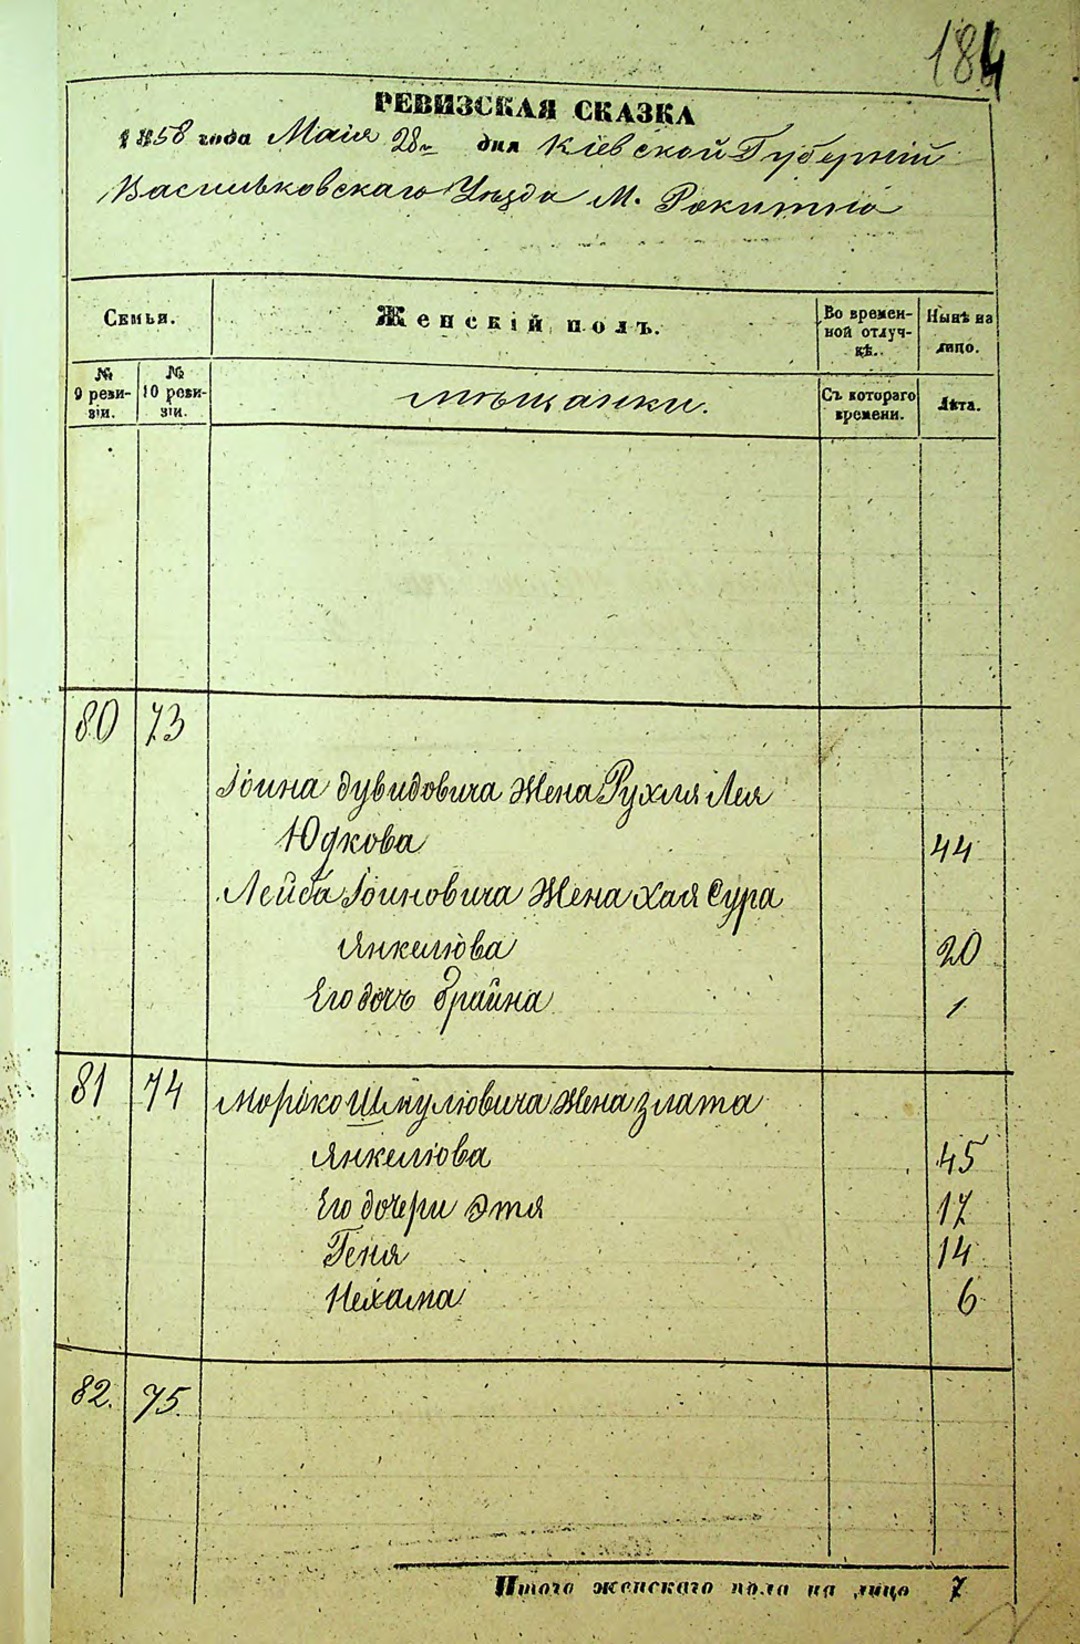 184
РЕВИЗСКАЯ СКАЗКА
1858 года Маія 28го дня Кіевской Губерніи
Васильковскаго Уѣзда М. Рокитно
Семьи.
Женскій полъ.
Во времен-
ной отлуч-
кѣ.
Нынѣ на
лицо.
№
9 реви-
зіи.
№
10 реви-
зіи.
мѣщанки.
Съ котораго
времени.
Лѣта.
80 73
Іоина Дувидовича Жена Рухля Лея
Юдкова 44
Лейба Іоиновича Жена Хая Сура
Янкелюва 20
Его дочь Брайна 1
81 74 Моршко Шмулювича Жена Злата
Янкелюва 45
Его дочери Этя 17
Геня 14
Нехама 6
82. 75.
Итого женскаго пола на лицо 7